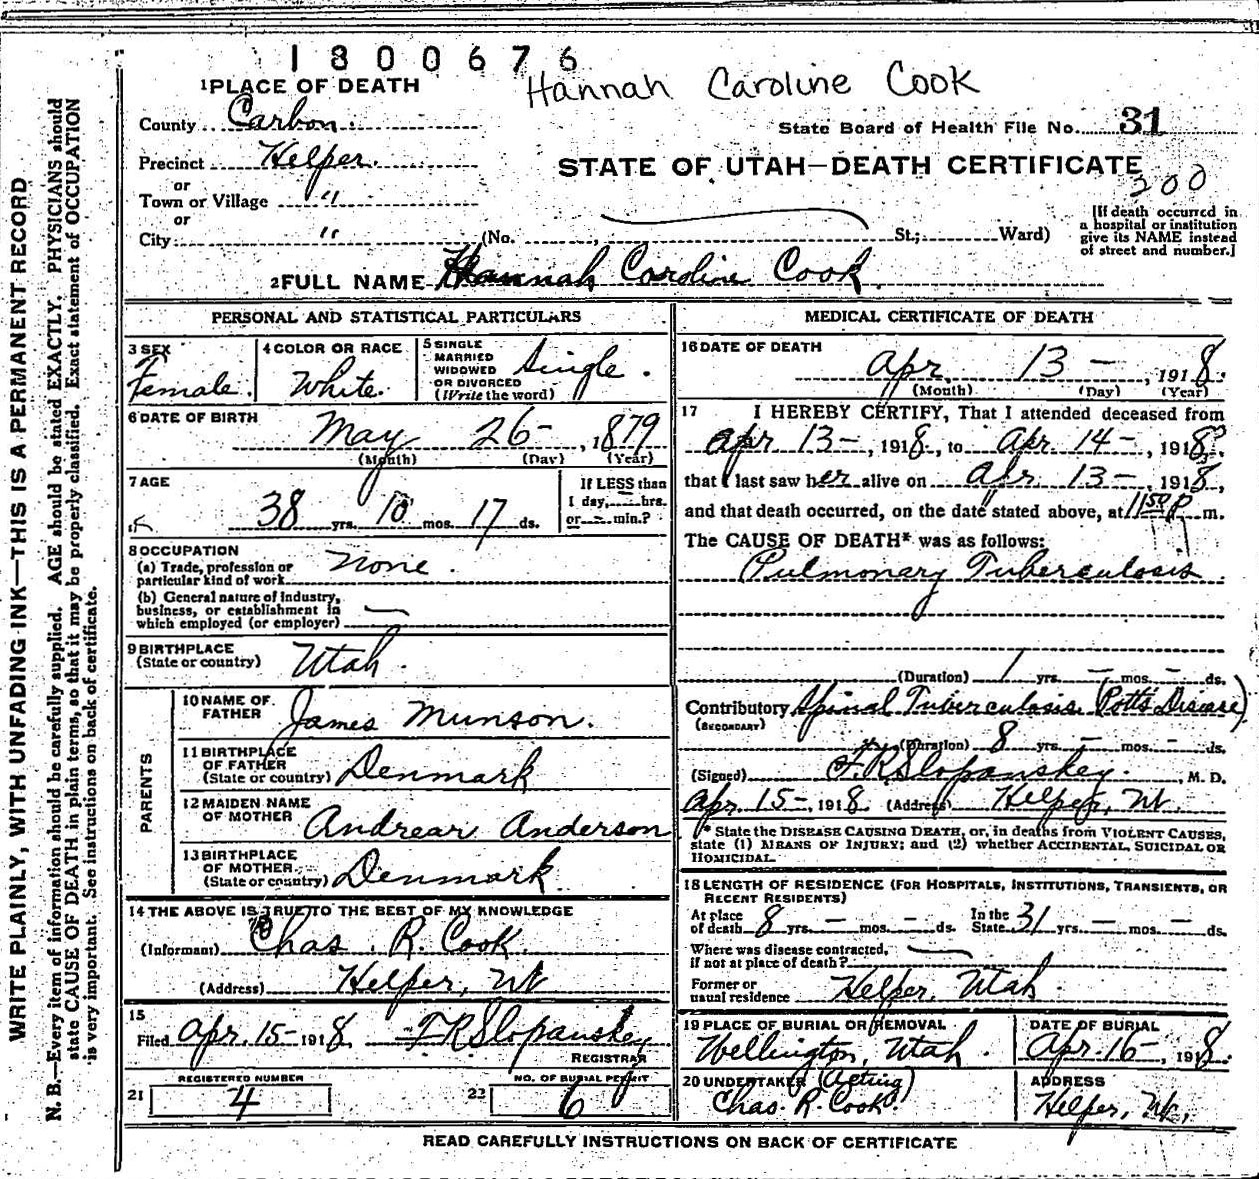 1800676
Hannah Caroline Cook
1 PLACE OF DEATH
County Carbon.
State Board of Health File No. 31
Precinct Helper.
STATE OF UTAH—DEATH CERTIFICATE
200
or
Town or Village "
or
City " (No. , St.; Ward)
[If death occurred in a hospital or institution give its NAME instead of street and number.]
2 FULL NAME Hannah Caroline Cook.
PERSONAL AND STATISTICAL PARTICULARS
3 SEX Female.
4 COLOR OR RACE White.
5 SINGLE MARRIED WIDOWED OR DIVORCED (Write the word) Single.
6 DATE OF BIRTH May 26-, 1879
(Month) (Day) (Year)
7 AGE 38 yrs. 10 mos. 17 ds.
If LESS than 1 day, — hrs. or — min.?
8 OCCUPATION
(a) Trade, profession or particular kind of work None.
(b) General nature of industry, business, or establishment in which employed (or employer) —
9 BIRTHPLACE (State or country) Utah.
PARENTS
10 NAME OF FATHER James Munson.
11 BIRTHPLACE OF FATHER (State or country) Denmark
12 MAIDEN NAME OF MOTHER Andrear Anderson
13 BIRTHPLACE OF MOTHER (State or country) Denmark
14 THE ABOVE IS TRUE TO THE BEST OF MY KNOWLEDGE
(Informant) Chas. R. Cook.
(Address) Helper, Ut
15
Filed Apr. 15- 1918. F R Slopanskey
REGISTRAR
REGISTERED NUMBER
21 4
NO. OF BURIAL PERMIT
22 6
MEDICAL CERTIFICATE OF DEATH
16 DATE OF DEATH
Apr 13 -, 1918.
(Month) (Day) (Year)
17 I HEREBY CERTIFY, That I attended deceased from
Apr 13-, 1918, to Apr. 14-, 1918,
that I last saw her alive on Apr. 13- 1918,
and that death occurred, on the date stated above, at 11 50 P m.
The CAUSE OF DEATH* was as follows:
Pulmonary Tuberculosis.
(Duration) 1 yrs. — mos. — ds.
Contributory Spinal Tuberculosis (Potts Disease).
(SECONDARY)
(Duration) 8 yrs. — mos. — ds.
(Signed) F. R Slopanskey., M. D.
Apr 15-, 1918. (Address) Helper, Ut.
* State the DISEASE CAUSING DEATH, or, in deaths from VIOLENT CAUSES, state (1) MEANS OF INJURY; and (2) whether ACCIDENTAL, SUICIDAL OR HOMICIDAL.
18 LENGTH OF RESIDENCE (FOR HOSPITALS, INSTITUTIONS, TRANSIENTS, OR RECENT RESIDENTS)
At place of death 8 yrs. — mos. — ds. In the State 31 yrs. — mos. — ds.
Where was disease contracted, if not at place of death? —
Former or usual residence Helper, Utah.
19 PLACE OF BURIAL OR REMOVAL
Wellington, Utah.
DATE OF BURIAL
Apr. 16-, 1918.
20 UNDERTAKER (Acting)
Chas. R. Cook.
ADDRESS
Helper, Ut.
READ CAREFULLY INSTRUCTIONS ON BACK OF CERTIFICATE
WRITE PLAINLY, WITH UNFADING INK—THIS IS A PERMANENT RECORD
N. B.—Every item of information should be carefully supplied. AGE should be stated EXACTLY. PHYSICIANS should
state CAUSE OF DEATH in plain terms, so that it may be properly classified. Exact statement of OCCUPATION
is very important. See instructions on back of certificate.